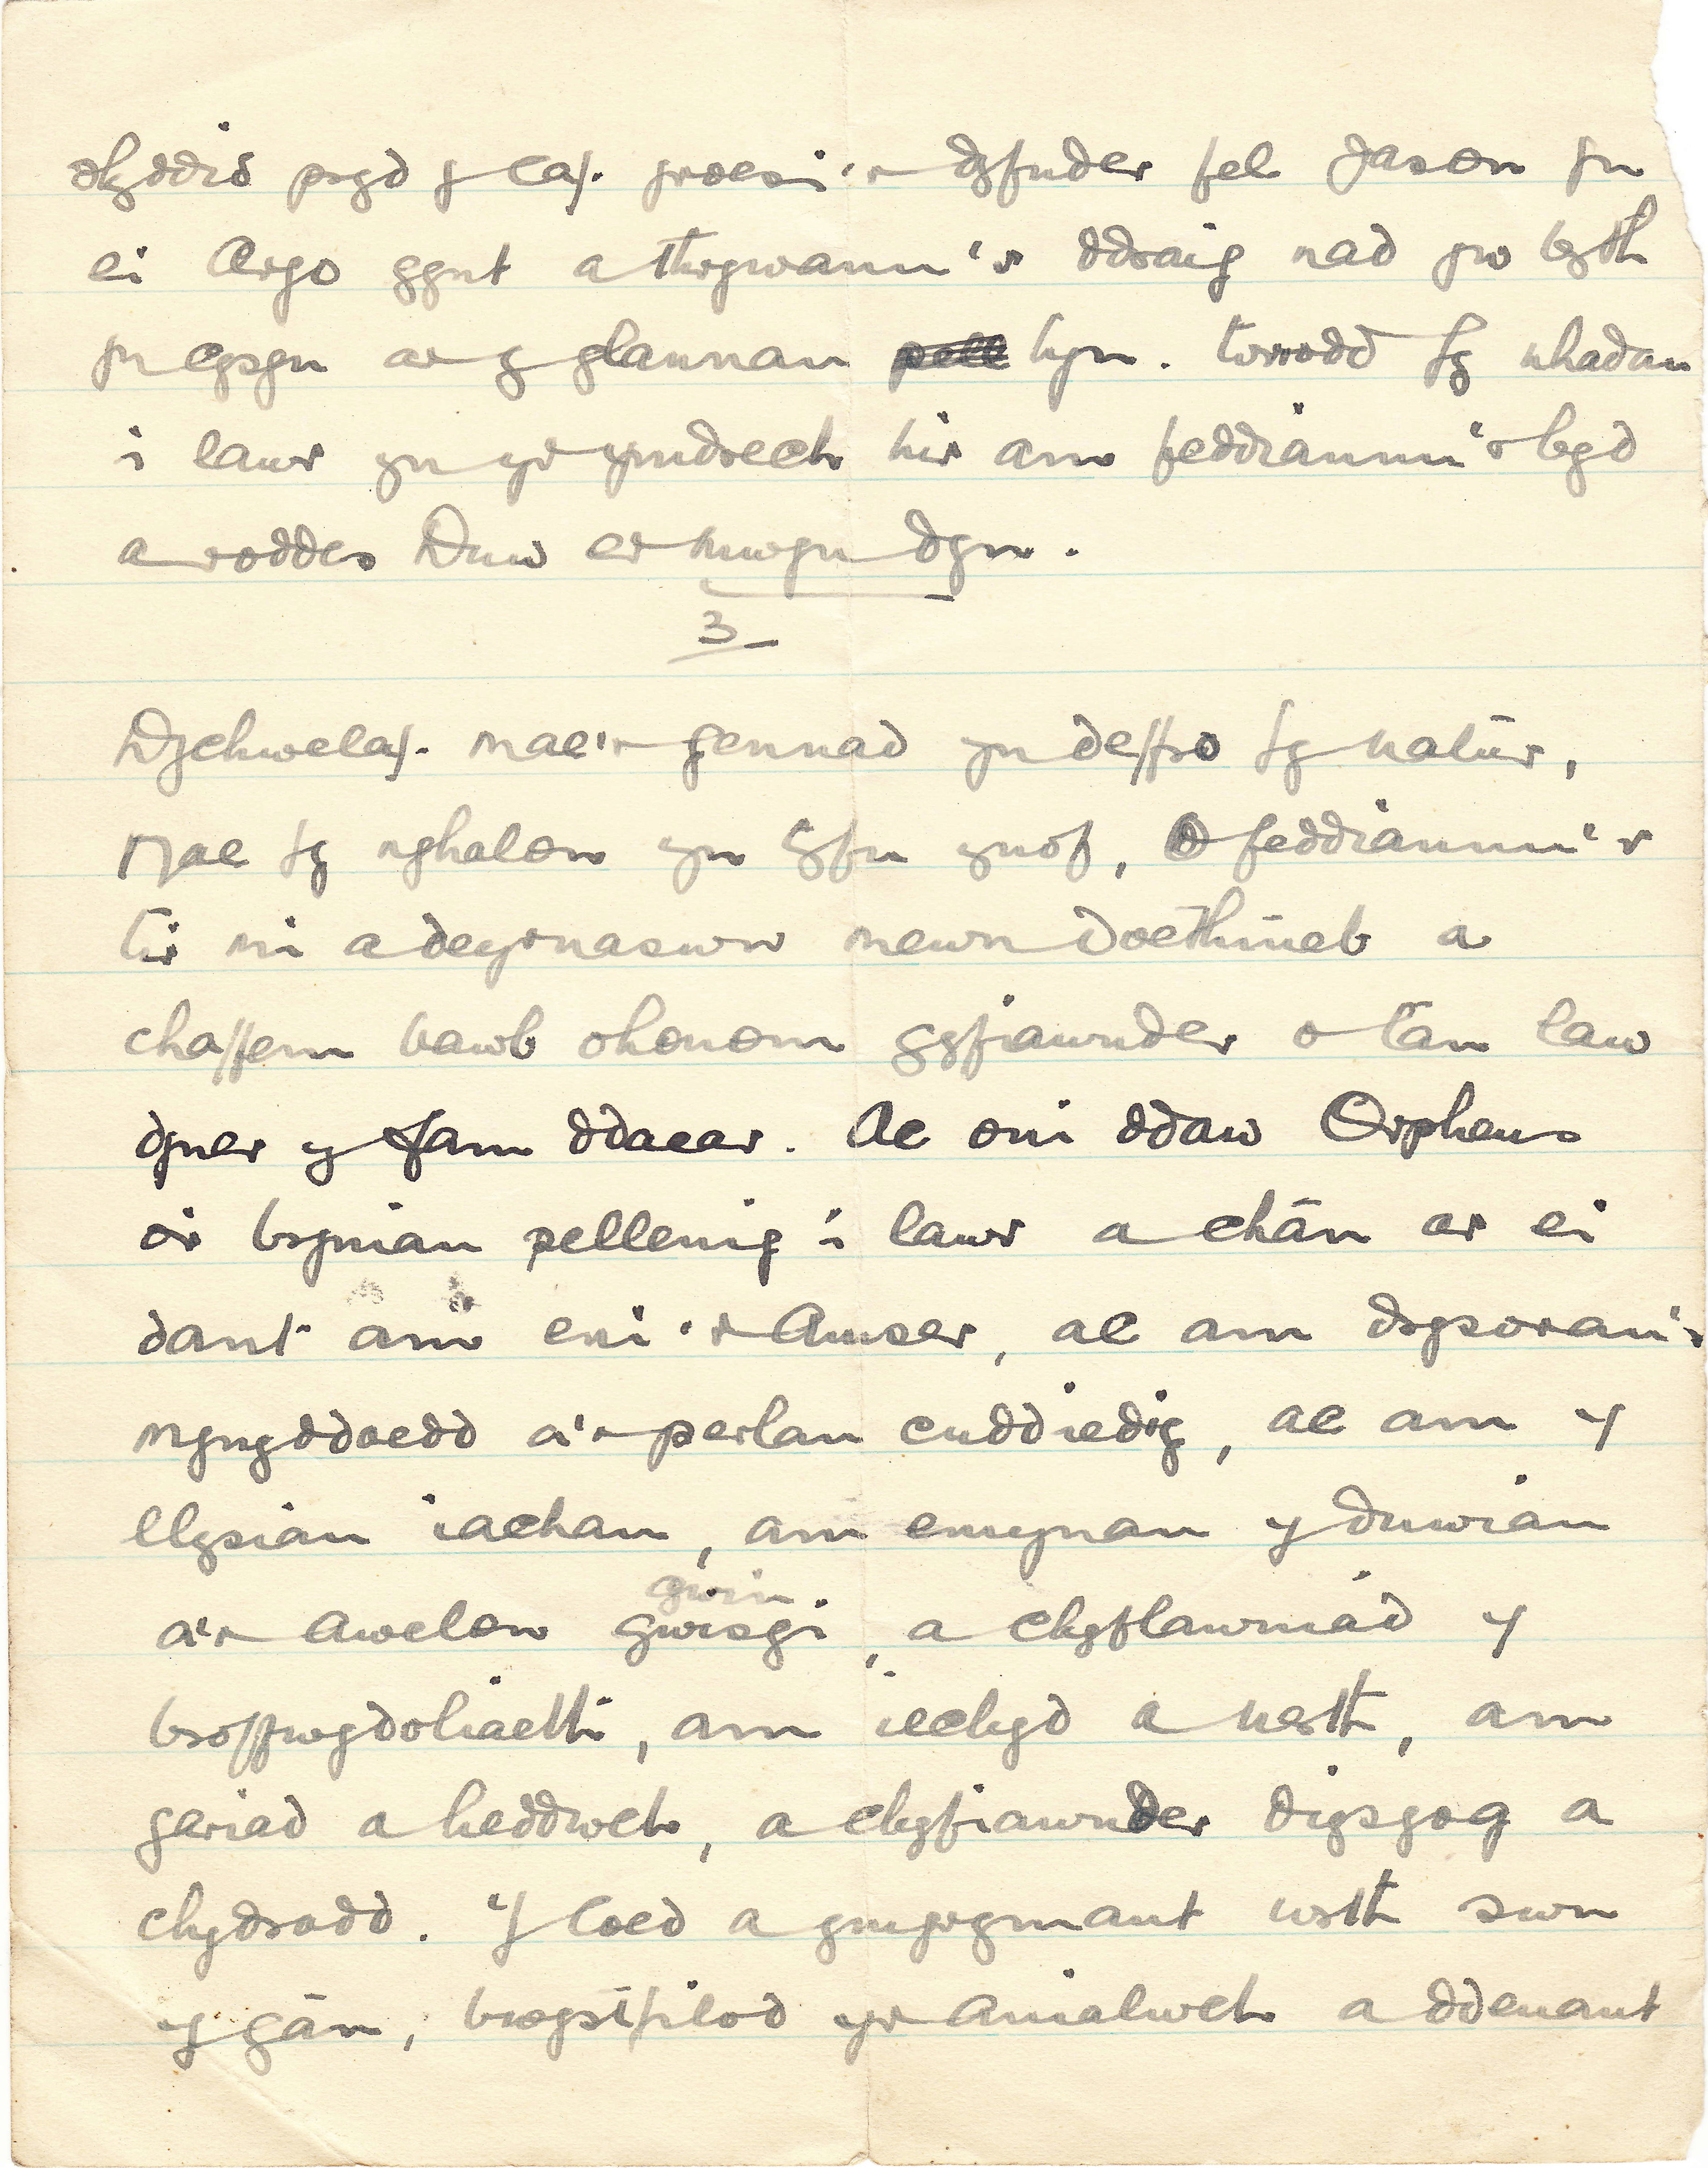 pryd y caf groesi'r dyfnder fel Jason yn
ei Argo gynt a thrywanu'r ddraig nad yw byth
yn cysgu ar y glannau hyn. torrodd fy nhadau
i lawr yn yr ymdrech hir am feddiannu'r byd
a roddes Duw er mwyn dyn.
3
Dychwelaf. mae'r gennad yn deffro fy natur,
Mae fy nghalon yn gyfn ynof, O feddiannu'r
tir ni a deyrnaswn mewn doethineb a
chaffem bawb ohonom gyfiawnder o tan law
dyner y fam ddaear. Ac oni ddaw Orpheus
o'r bryniau pellenig i lawr a chân ar ei
dant am eni'r Amser, ac am drysorau'r
mynyddoedd a'r perlau cuddiedig, ac am y
llysiau iachau, am emynau y duwiau
gwin
a'r awelon gwisgi, a chyflawniad y
broffwydoliaeth, am iechyd a nerth, am
gariad a heddwch, a chyfiawnder digsgog a
chydradd. Y coed a ymgrymant wrth swn
y gân, bwystfilod yr anialwch a ddeuant